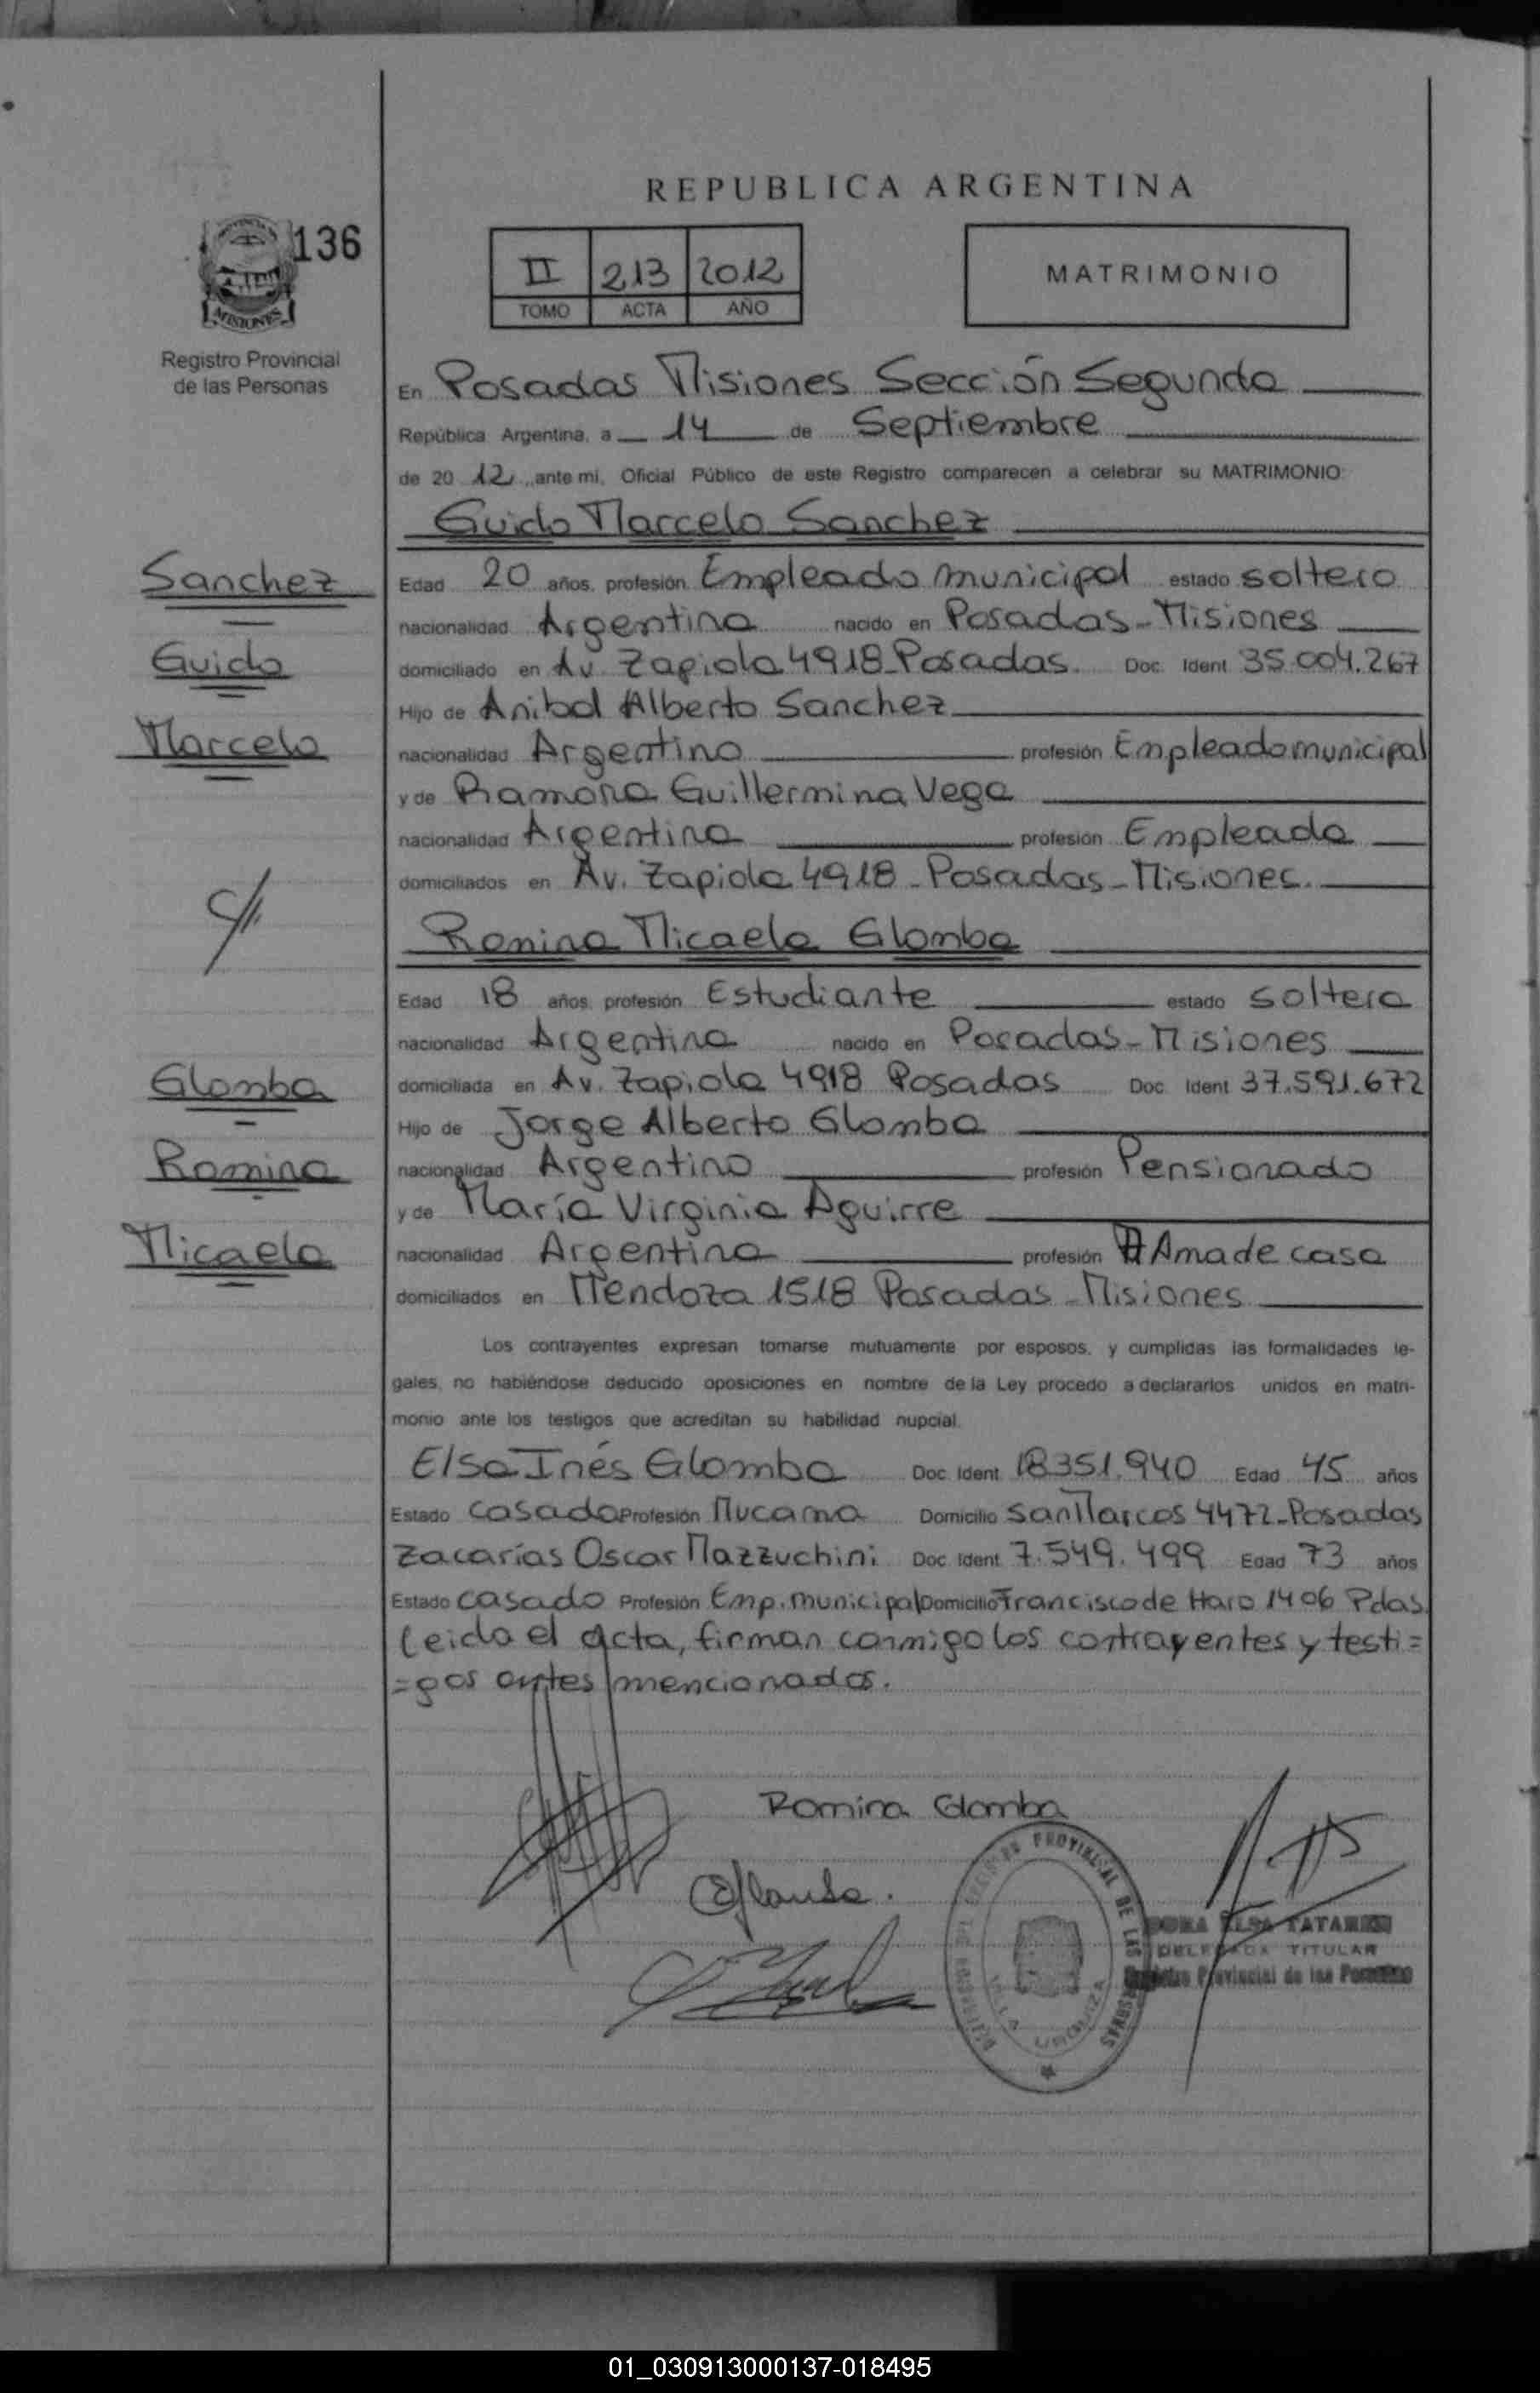 REPUBLICA ARGENTINA
136
MISIONES
Registro Provincial
de las Personas
II 213 2012
TOMO ACTA AÑO
MATRIMONIO
En Posadas Misiones Sección Segunda
República Argentina, a 14 de Septiembre
de 20 12, ante mi, Oficial Público de este Registro comparecen a celebrar su MATRIMONIO:
Guido Marcelo Sanchez
Sanchez
Guido
Marcelo
Edad 20 años, profesión Empleado municipal estado soltero
nacionalidad Argentina nacido en Posadas - Misiones
domiciliado en Av. Zapiola 4918 - Posadas. Doc. Ident 35.004.267
Hijo de Anibal Alberto Sanchez
nacionalidad Argentino profesión Empleado municipal
y de Ramona Guillermina Vega
nacionalidad Argentina profesión Empleada
domiciliados en Av. Zapiola 4918 - Posadas - Misiones.
Romina Micaela Glomba
Edad 18 años, profesión Estudiante estado soltera
nacionalidad Argentina nacido en Posadas - Misiones
Glomba
Romina
Micaela
domiciliada en Av. Zapiola 4918 Posadas Doc. Ident 37.591.672
Hijo de Jorge Alberto Glomba
nacionalidad Argentino profesión Pensionado
y de María Virginia Aguirre
nacionalidad Argentina profesión Ama de casa
domiciliados en Mendoza 1518 Posadas - Misiones
Los contrayentes expresan tomarse mutuamente por esposos, y cumplidas las formalidades le-
gales, no habiéndose deducido oposiciones en nombre de la Ley procedo a declararlos unidos en matri-
monio ante los testigos que acreditan su habilidad nupcial.
Elsa Inés Glomba Doc. Ident. 18351.940 Edad 45 años
Estado casada Profesión Mucama Domicilio San Marcos 4472 - Posadas
Zacarías Oscar Mazzuchini Doc. Ident 7.549.499 Edad 73 años
Estado casado Profesión Emp. municipal Domicilio Francisco de Haro 1406 Pdas.
Leida el acta, firman conmigo los contrayentes y testi=
=gos antes mencionados.
Romina Glomba
PROVINCIAL DE LAS PERSONAS
DELEGADA TITULAR
Registro Provincial de las Personas
01_030913000137-018495